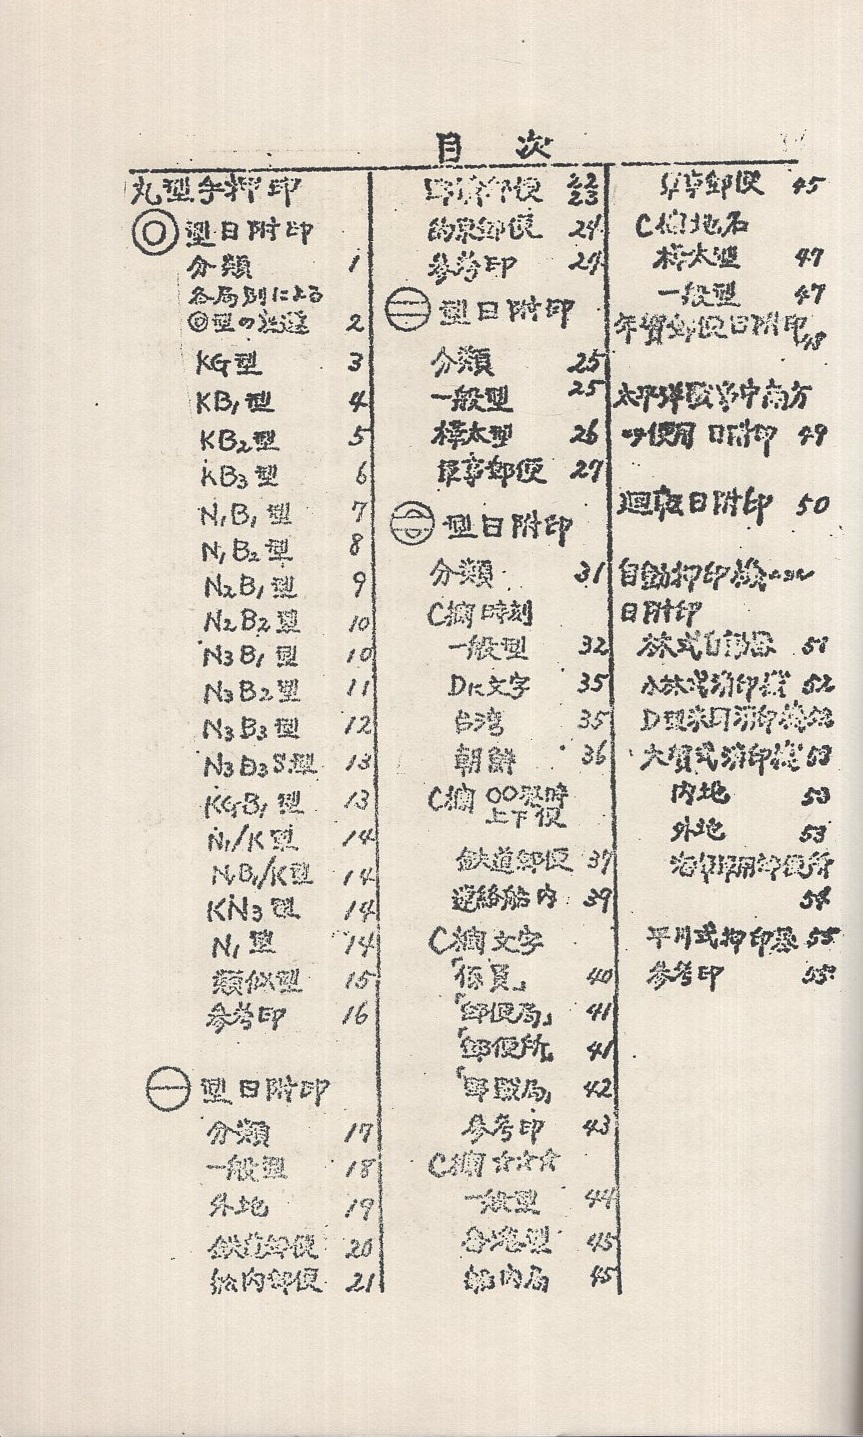 目次
丸型手押印
◎型日附印
分類 1
各局別による
◎型の 2
KG型 3
KB1型 4
KB2型 5
KB3型 6
N1B1型 7
N1B2型 8
N2B1型 9
N2B2型 10
N3B1型 10
N3B2型 11
N3B3型 12
N3B3S型 13
KGB1型 13
N1/K型 14
N1B1/K型 14
KN3型 14
N1型 14
類似型 15
参考印 16
型日附印
分類 17
一般型 18
外地 19
鉄道郵便 20
船内郵便 21
郵便 22
23
郵便 24
参考印 24
型日附印
分類 25
一般型 25
樺太型 26
軍事郵便 27
型日附印
分類 31
C欄時刻
一般型 32
Dに文字 35
台湾 35
朝鮮 36
C欄 〇〇 時
上下便
鉄道郵便 37
連絡船内 39
C欄文字
「 」 40
「郵便局」 41
「郵便所」 41
「野戦局」 42
参考印 43
C欄☆☆☆
一般型 44
型 45
船内局 45
軍事郵便 45
C欄地名
樺太型 47
一般型 47
年賀郵便日附印 48
太平洋戦争中南方
使用日附印 49
廻転日附印 50
自動押印機
日附印
林式自働器 51
林式消印機 52
D型 消印機
大賀式消印機 53
内地 53
外地 53
郵便所
54
平川式押印器 55
参考印 55